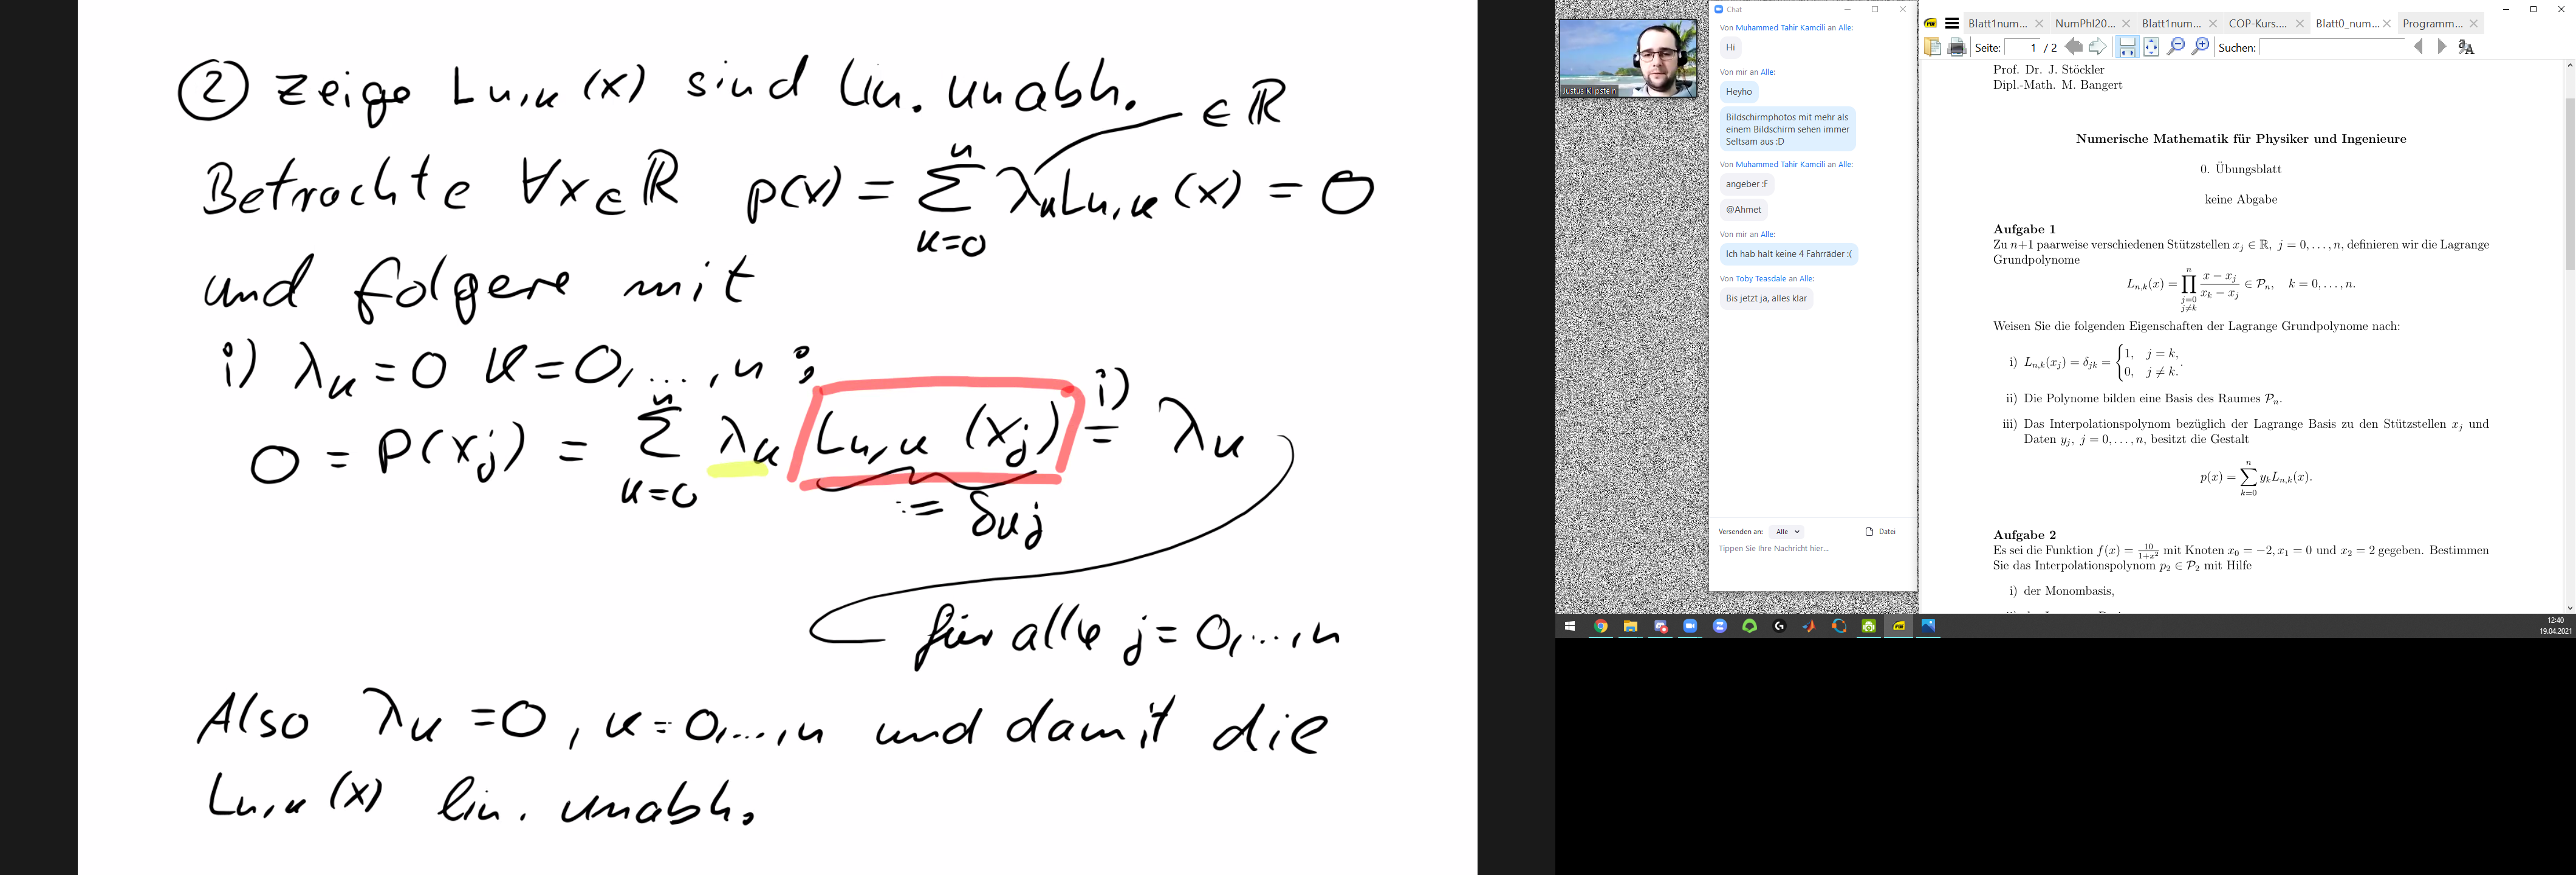 ② Zeige Ln,k (x) sind lin. unabh.
∈ ℝ
Betrachte ∀x∈ℝ p(x) = ∑ λk Ln,k (x) = 0
n
k=0
und folgere mit
i) λk = 0 k = 0, ..., n :
0 = p(xj) = ∑ λk Ln,k (xj) = λk
n
k=0
i)
:= δkj
für alle j = 0, ..., n
Also λk = 0, k = 0, ..., n und damit die
Ln,k (x) lin. unabh.
Justus Klipstein
Chat
Von Muhammed Tahir Kamcili an Alle:
Hi
Von mir an Alle:
Heyho
Bildschirmphotos mit mehr als
einem Bildschirm sehen immer
Seltsam aus :D
Von Muhammed Tahir Kamcili an Alle:
angeber :F
@Ahmet
Von mir an Alle:
Ich hab halt keine 4 Fahrräder :(
Von Toby Teasdale an Alle:
Bis jetzt ja, alles klar
Versenden an: Alle Datei
Tippen Sie Ihre Nachricht hier...
Blatt1num... NumPhI20... Blatt1num... COP-Kurs.... Blatt0_num... Programm...
Seite: 1 / 2 Suchen:
Prof. Dr. J. Stöckler
Dipl.-Math. M. Bangert
Numerische Mathematik für Physiker und Ingenieure
0. Übungsblatt
keine Abgabe
Aufgabe 1
Zu n+1 paarweise verschiedenen Stützstellen xj ∈ ℝ, j = 0, . . . , n, definieren wir die Lagrange
Grundpolynome
Ln,k(x) = ∏ (j=0, j≠k)^n (x − xj)/(xk − xj) ∈ Pn, k = 0, . . . , n.
Weisen Sie die folgenden Eigenschaften der Lagrange Grundpolynome nach:
i) Ln,k(xj) = δjk = { 1, j = k, 0, j ≠ k. .
ii) Die Polynome bilden eine Basis des Raumes Pn.
iii) Das Interpolationspolynom bezüglich der Lagrange Basis zu den Stützstellen xj und
Daten yj, j = 0, . . . , n, besitzt die Gestalt
p(x) = ∑ (k=0)^n yk Ln,k(x).
Aufgabe 2
Es sei die Funktion f(x) = 10/(1+x²) mit Knoten x0 = −2, x1 = 0 und x2 = 2 gegeben. Bestimmen
Sie das Interpolationspolynom p2 ∈ P2 mit Hilfe
i) der Monombasis,
12:40
19.04.2021